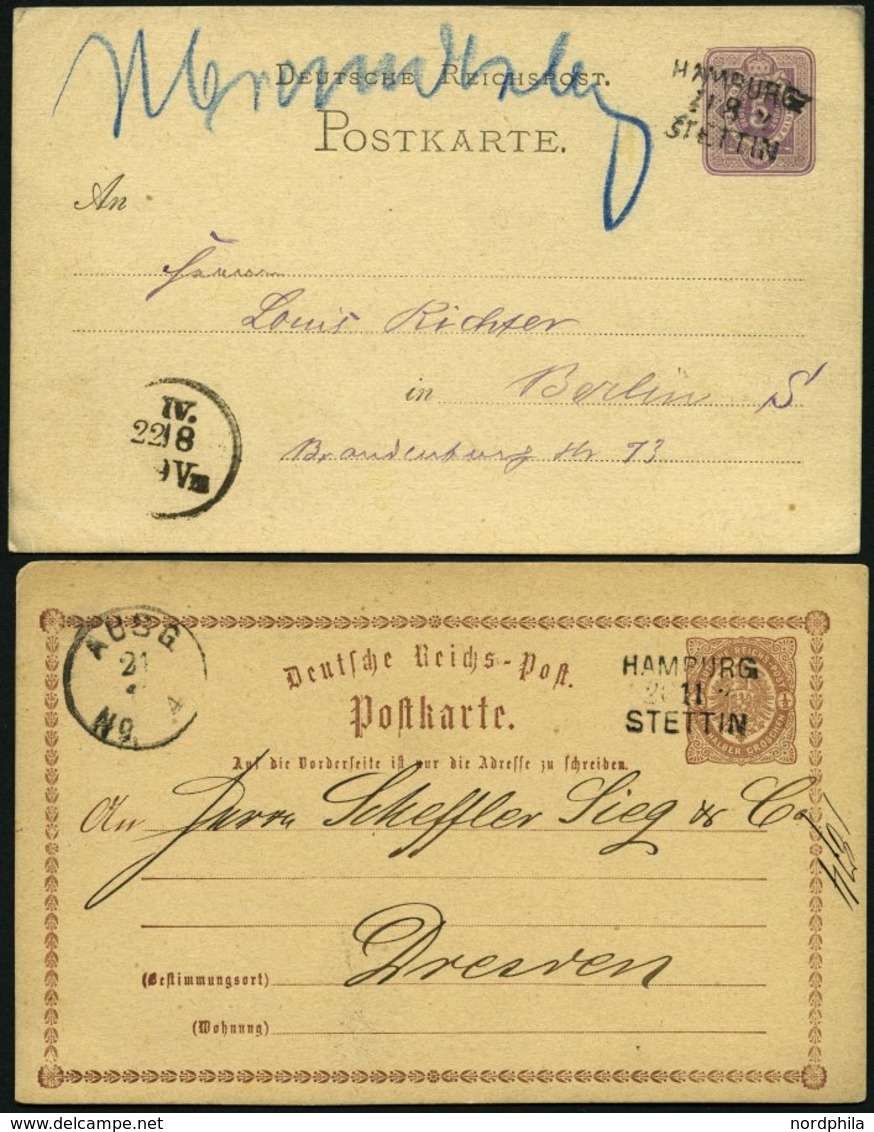 DEUTSCHE REICHSPOST.
POSTKARTE.
HAMBURG
STETTIN
An
Herrn
Louis Richter
in Berlin S
Brandenburg Str 73
IV.
22 8
9 Vm
AUSG
21
No
4
Deutsche Reichs-Post.
Postkarte.
Auf die Vorderseite ist nur die Adresse zu schreiben.
HAMBURG
11
STETTIN
HALBER GROSCHEN
An Herrn Scheffler Sieg & Co
Dresden
(Bestimmungsort)
(Wohnung)
nordphila